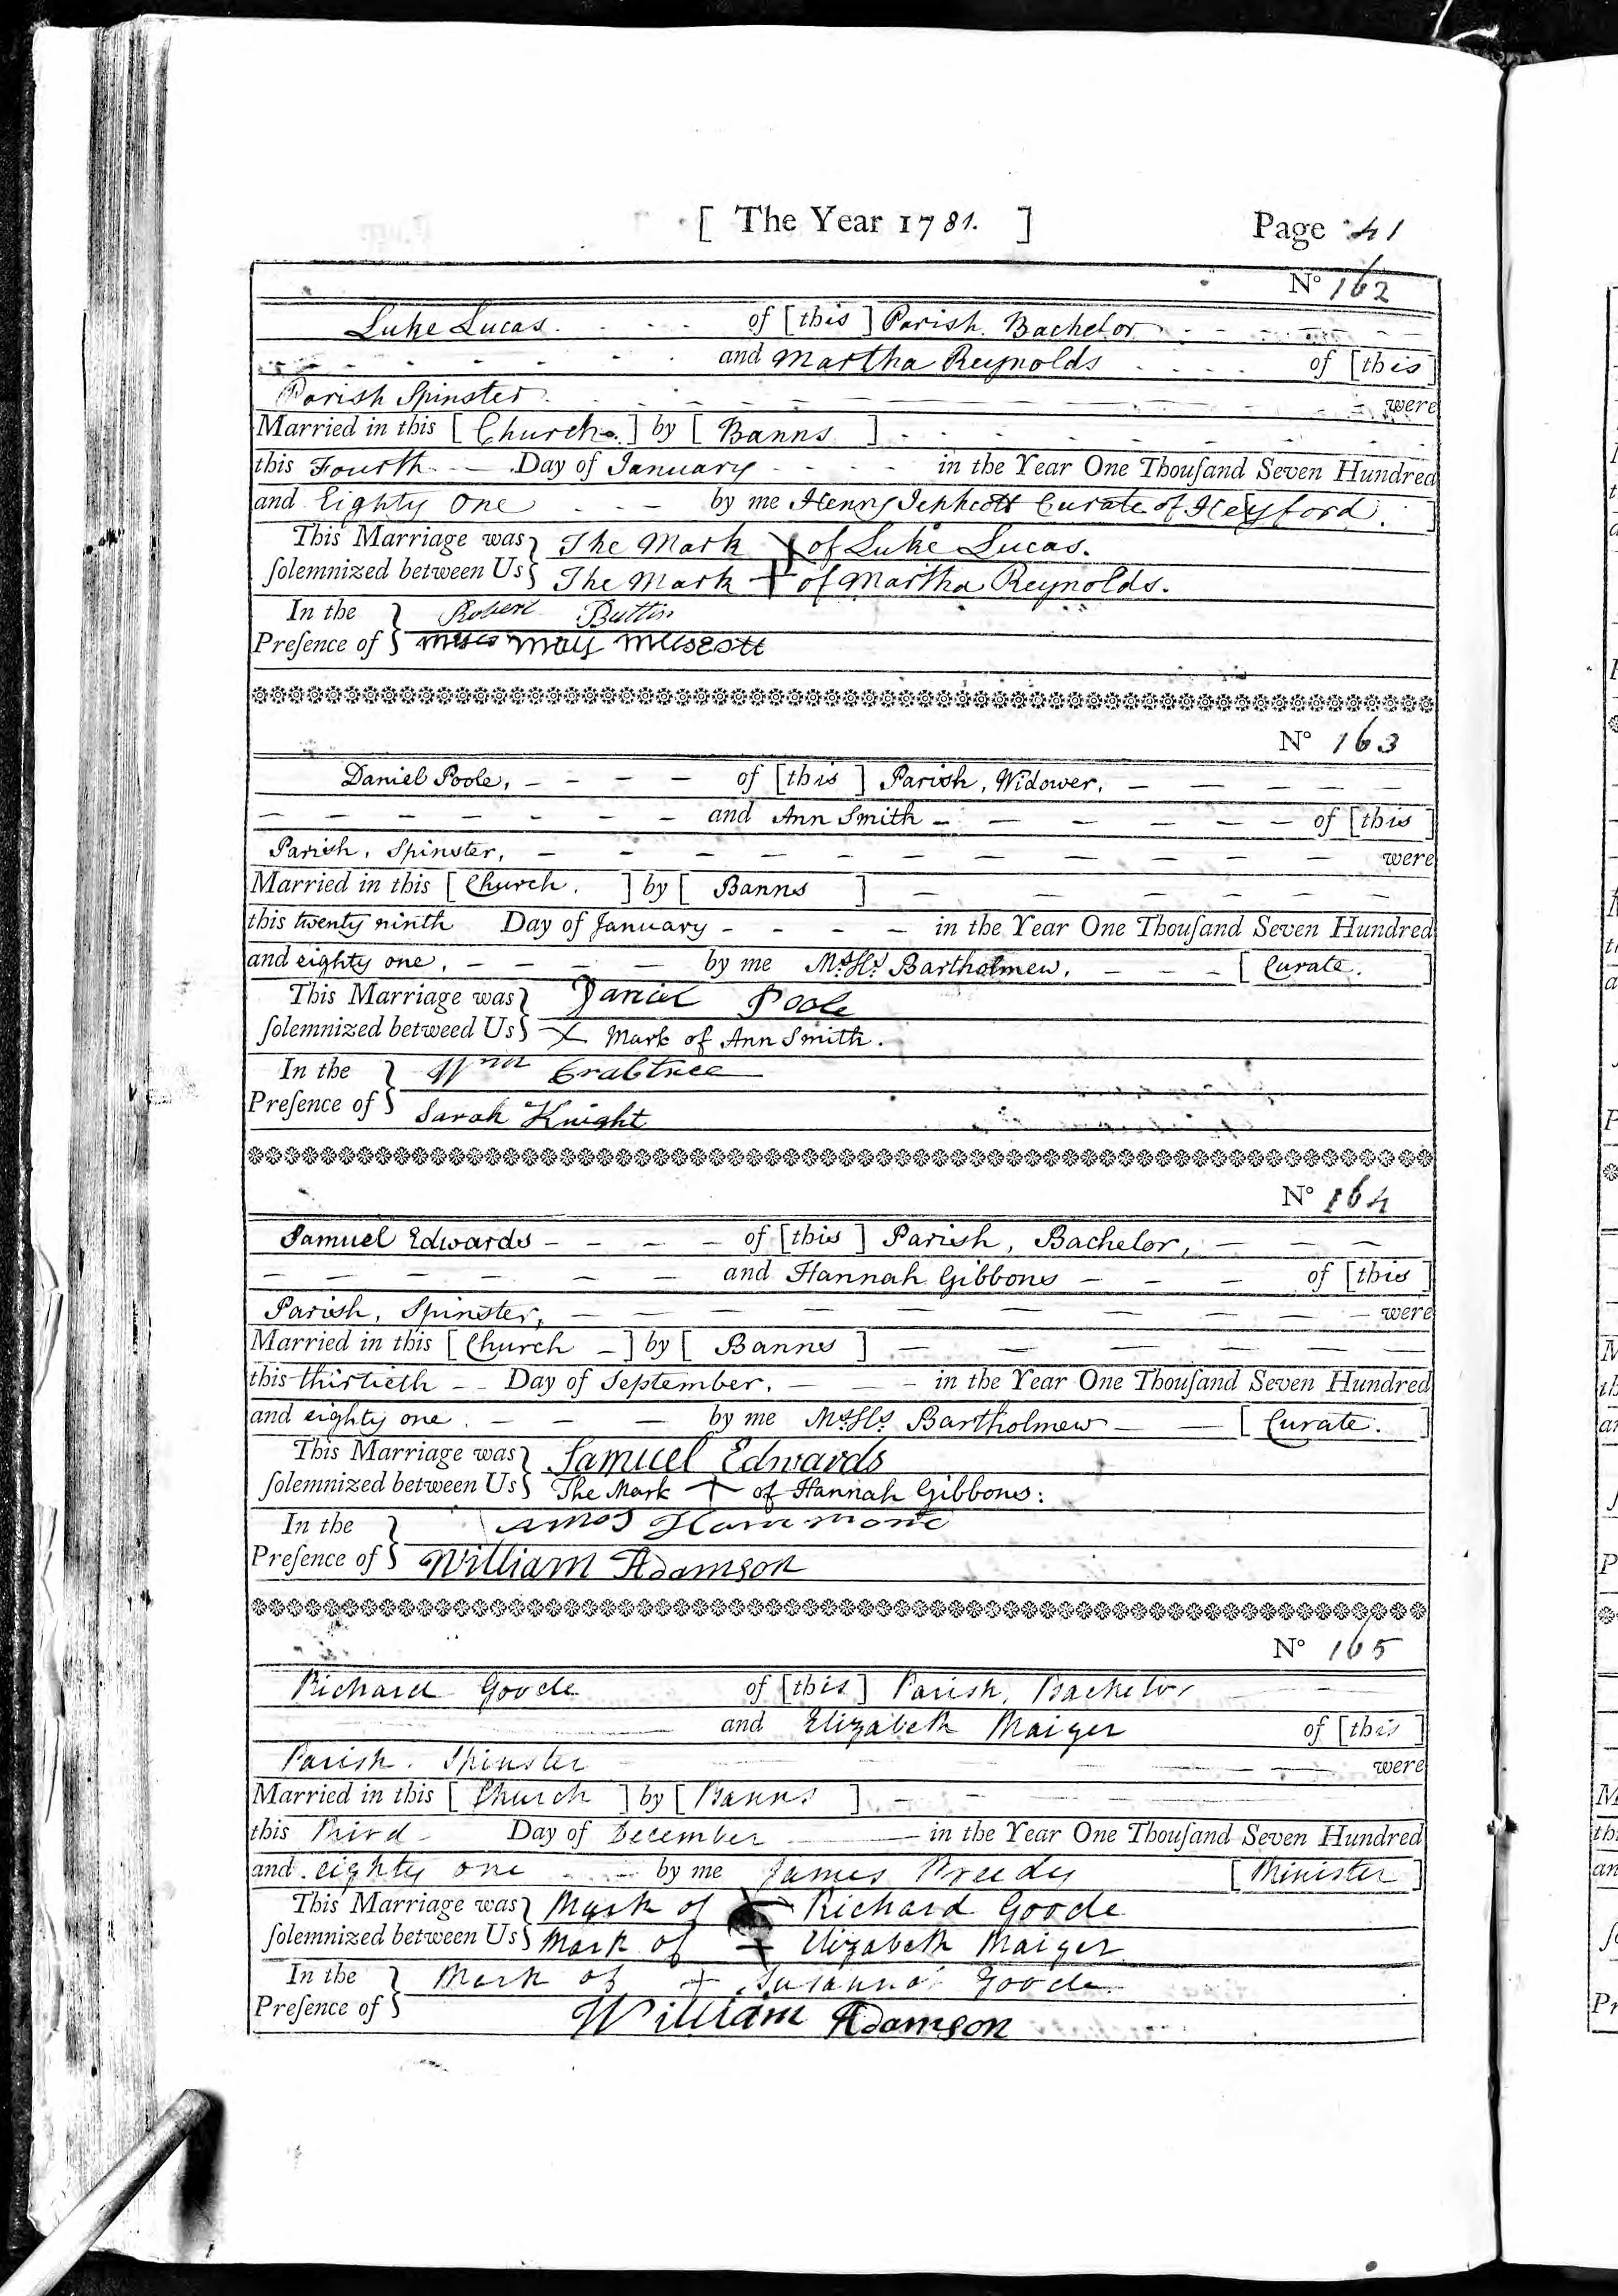 [ The Year 1781. ] Page 41
No 162
Luke Lucas. of [this] Parish. Bachelor
and Martha Reynolds of [this]
Parish Spinster were
Married in this [Church] by [Banns]
this Fourth Day of January in the Year One Thouſand Seven Hundred
and Eighty One by me Henry Jephcott Curate of Heyford.]
This Marriage was } The Mark X of Luke Lucas.
ſolemnized between Us } The Mark + of Martha Reynolds.
In the } Robert
Preſence of }
No 163
Daniel Poole, of [this] Parish, Widower,
and Ann Smith of [this]
Parish, Spinster, were
Married in this [Church.] by [Banns]
this twenty ninth Day of January in the Year One Thouſand Seven Hundred
and eighty one, by me Bartholmew, [Curate.]
This Marriage was } Daniel Poole
ſolemnized betweed Us } X Mark of Ann Smith.
In the } Wm Crabtree
Preſence of } Sarah Knight
No 164
Samuel Edwards of [this] Parish, Bachelor,
and Hannah Gibbons of [this]
Parish, Spinster, were
Married in this [Church] by [Banns]
this thirtieth Day of September, in the Year One Thouſand Seven Hundred
and eighty one. by me Bartholmew [Curate.]
This Marriage was } Samuel Edwards
ſolemnized between Us } The Mark + of Hannah Gibbons:
In the } Amos
Preſence of } William Adamson
No 165
Richard Goode of [this] Parish, Bachelor
and Elizabeth Maiger of [this]
Parish. Spinster were
Married in this [Church] by [Banns]
this Third Day of December in the Year One Thouſand Seven Hundred
and eighty one by me James Preedy [Minister]
This Marriage was } Mark of + Richard Goode
ſolemnized between Us } Mark of + Elizabeth Maiger
In the } Mark of + Susanna Goode
Preſence of } William Adamson